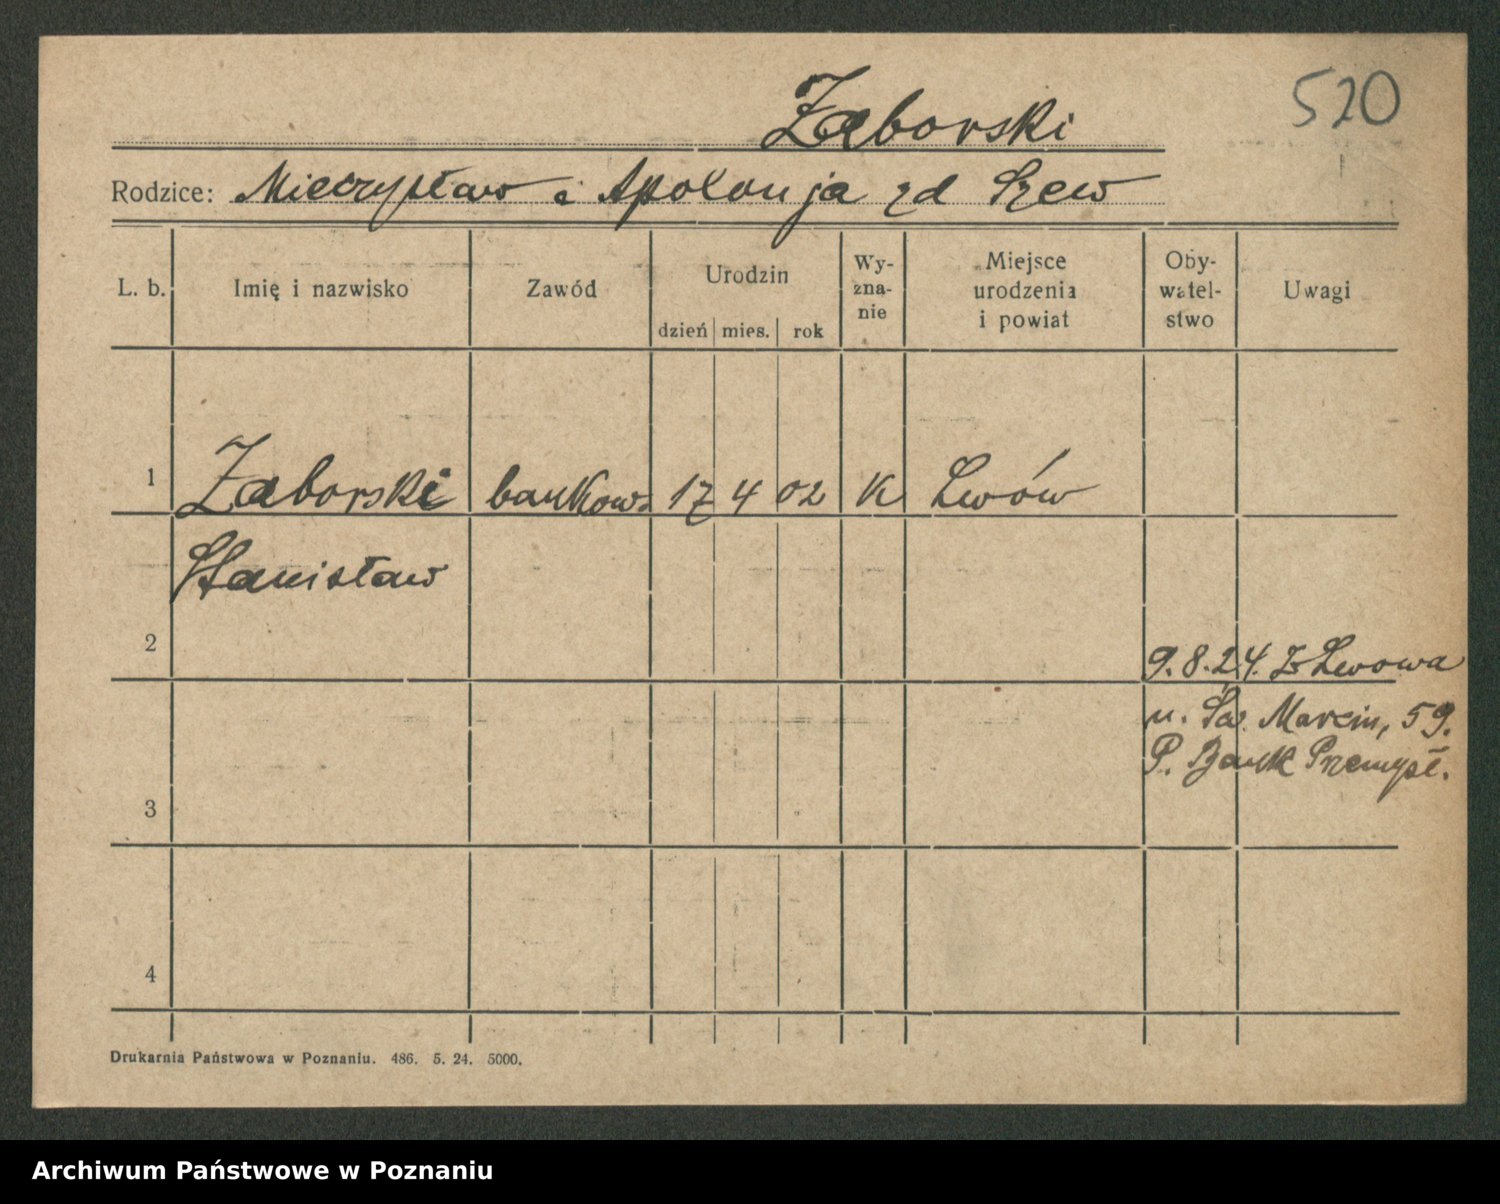 520
Zaborski
Rodzice: Mieczysław i Apolonja zd Szew
L. b. Imię i nazwisko Zawód Urodzin dzień mies. rok Wy-zna-nie Miejsce urodzenia i powiat Oby-watel-stwo Uwagi
1 Zaborski bankow. 17 4 02 K Lwów
Stanisław
2
9.8.24. z Lwowa
u. Św. Marcin, 59.
P. Bank Przemysł.
3
4
Drukarnia Państwowa w Poznaniu. 486. 5. 24. 5000.
Archiwum Państwowe w Poznaniu